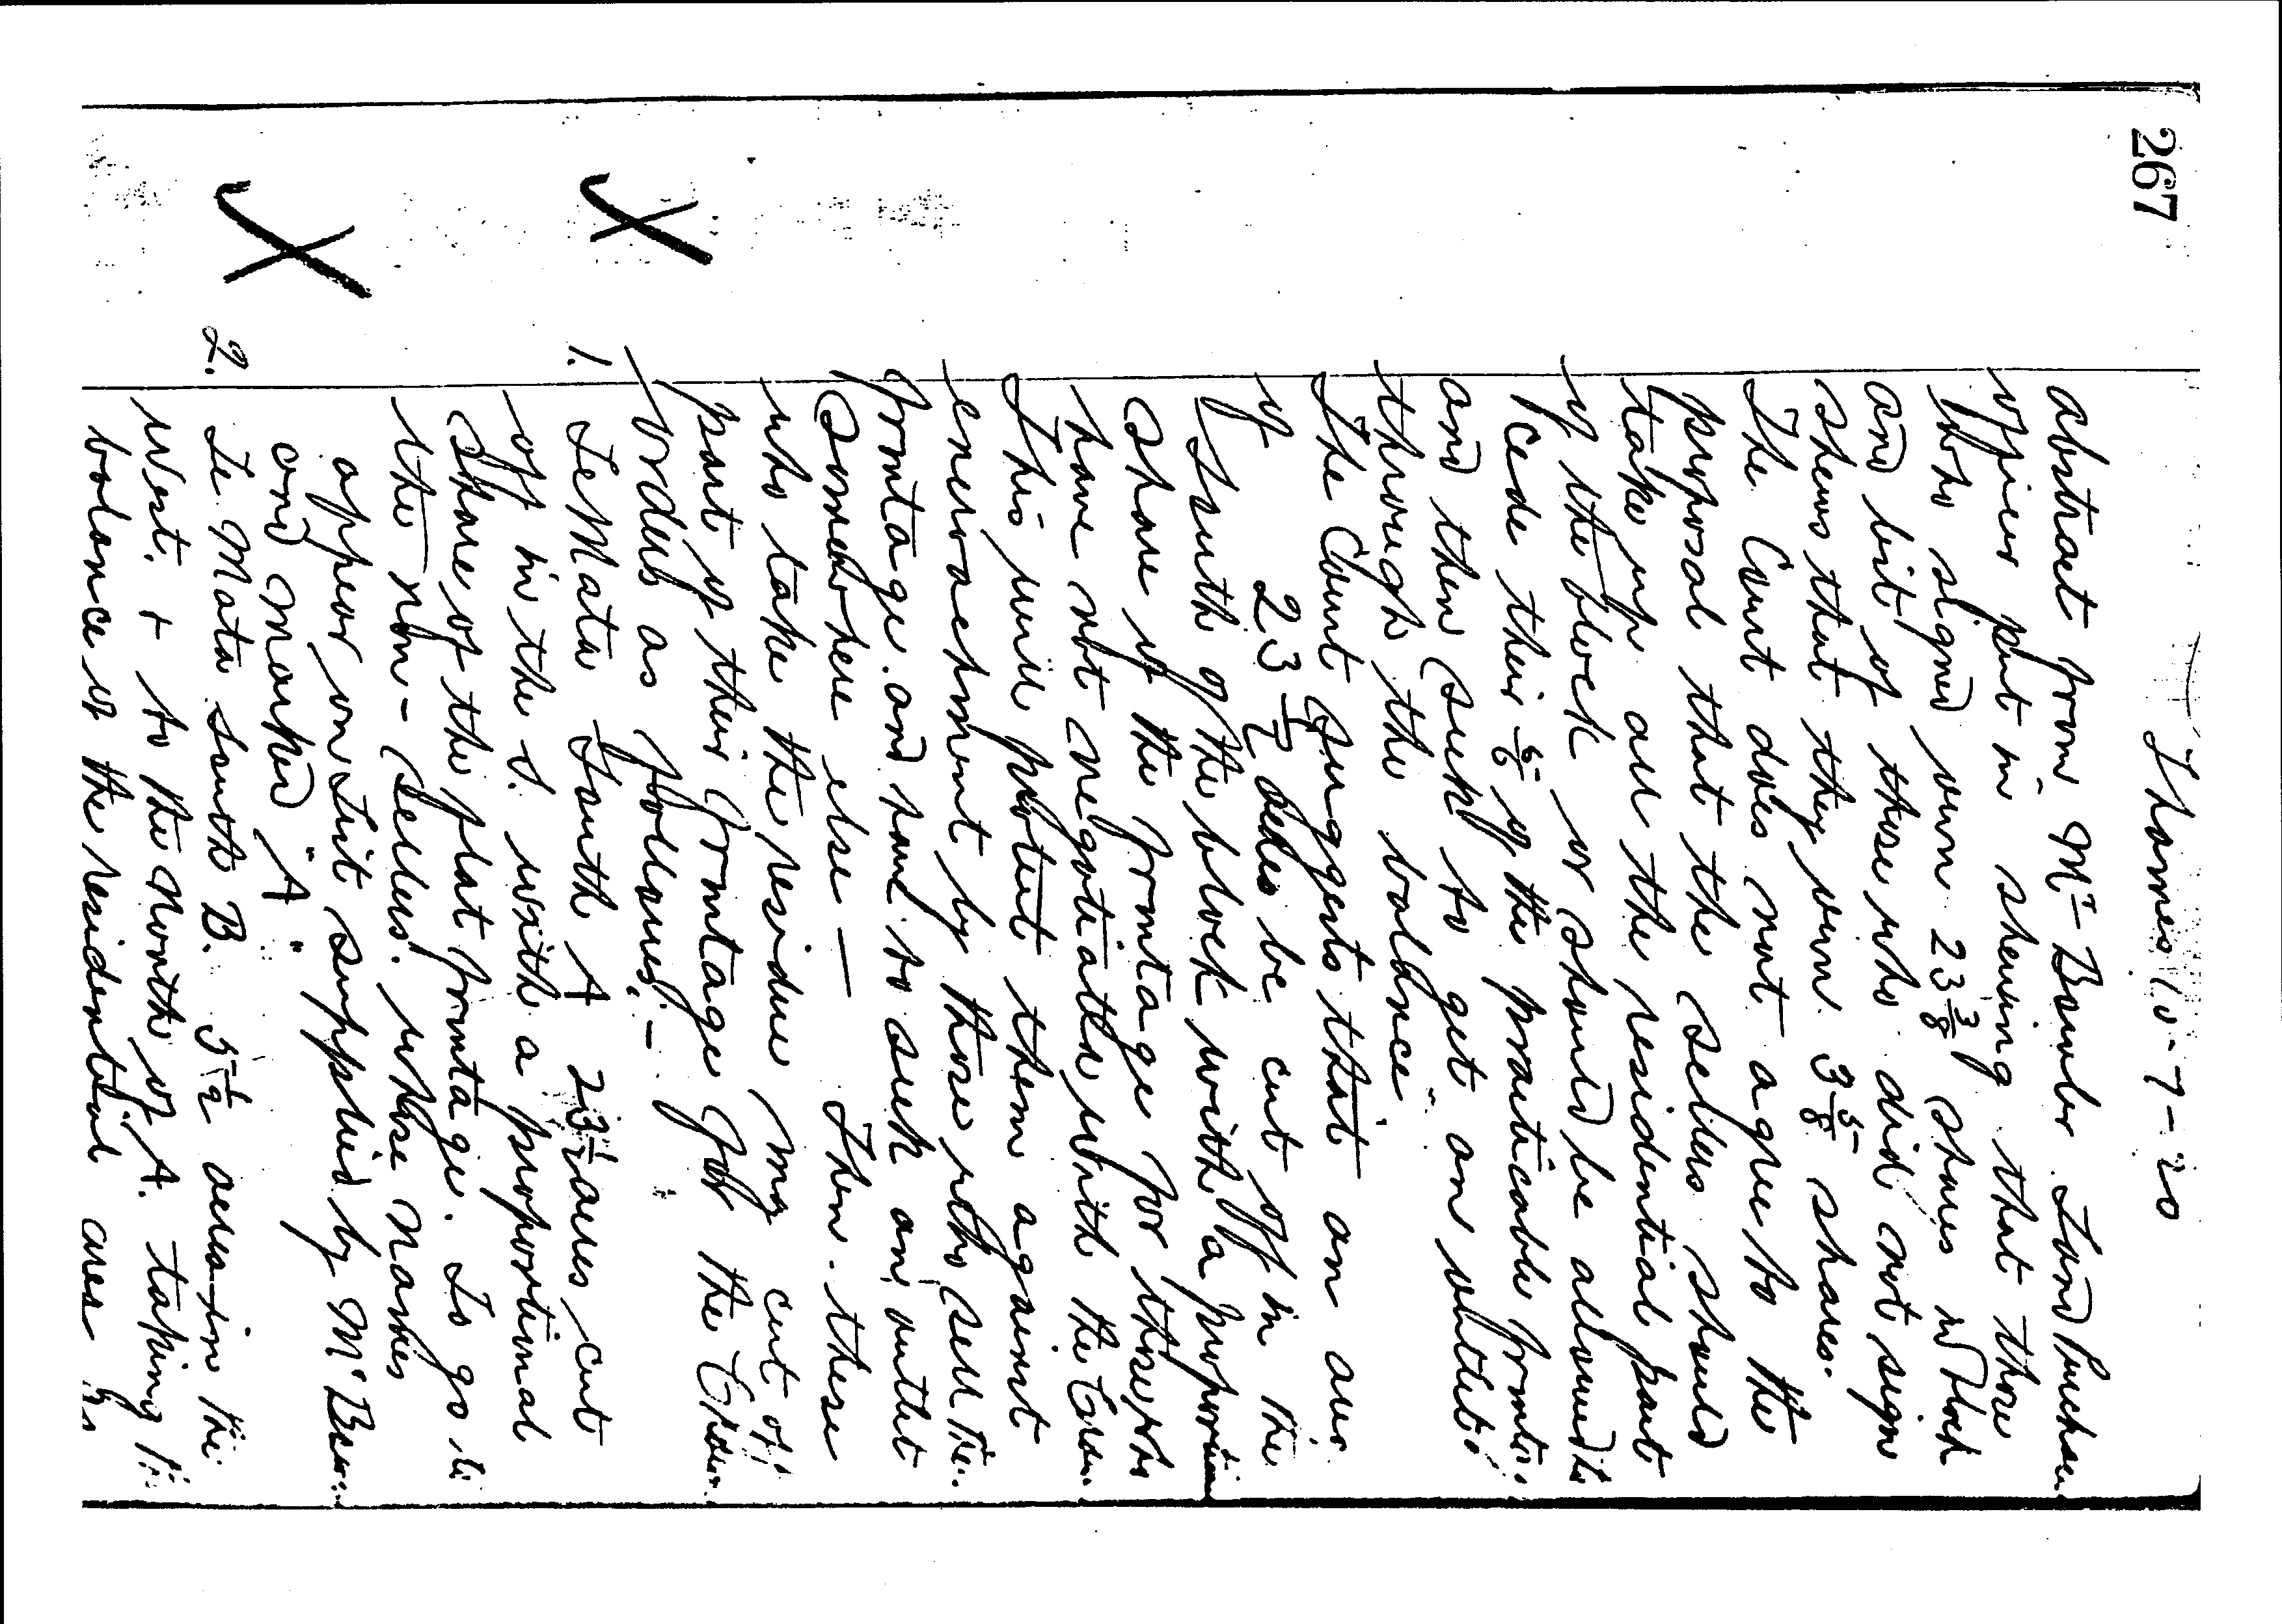 267
Thames 10-7-20
abstract from Mr Bowler Land Purchase
officer put in shewing that those
who signed own 23 3/8 shares in block
and list of those who did not sign
shews that they own 3 5/8 shares.
The Court does not agree to the
proposal that the sellers should
take up all the residential part
of the block or should be allowed to
cede their 5/6 of the practicable
and then seek to get an outlet
through the balance.
The Court suggests that an area
of 23 1/2 acres be cut off in the
South of the block with a proportion
share of the frontage for those who
have not negotiated with the Crown
This will protect them against
encroachment by those who sell their
frontage and have to seek an outlet
somewhere else — Then these
who take the residue may cut off
part of their frontage for the Crown
orders as follows:-
1. Te Mata South A 23 1/2 acres cut
off in the S. with a proportional
share of the flat frontage. To go to
the non-sellers. whose names
appear on list supplied by Mr
and marked "A"
2. Te Mata South B. 5 1/2 acres in the
West. + to the North of A. taking the
balance of the residential area